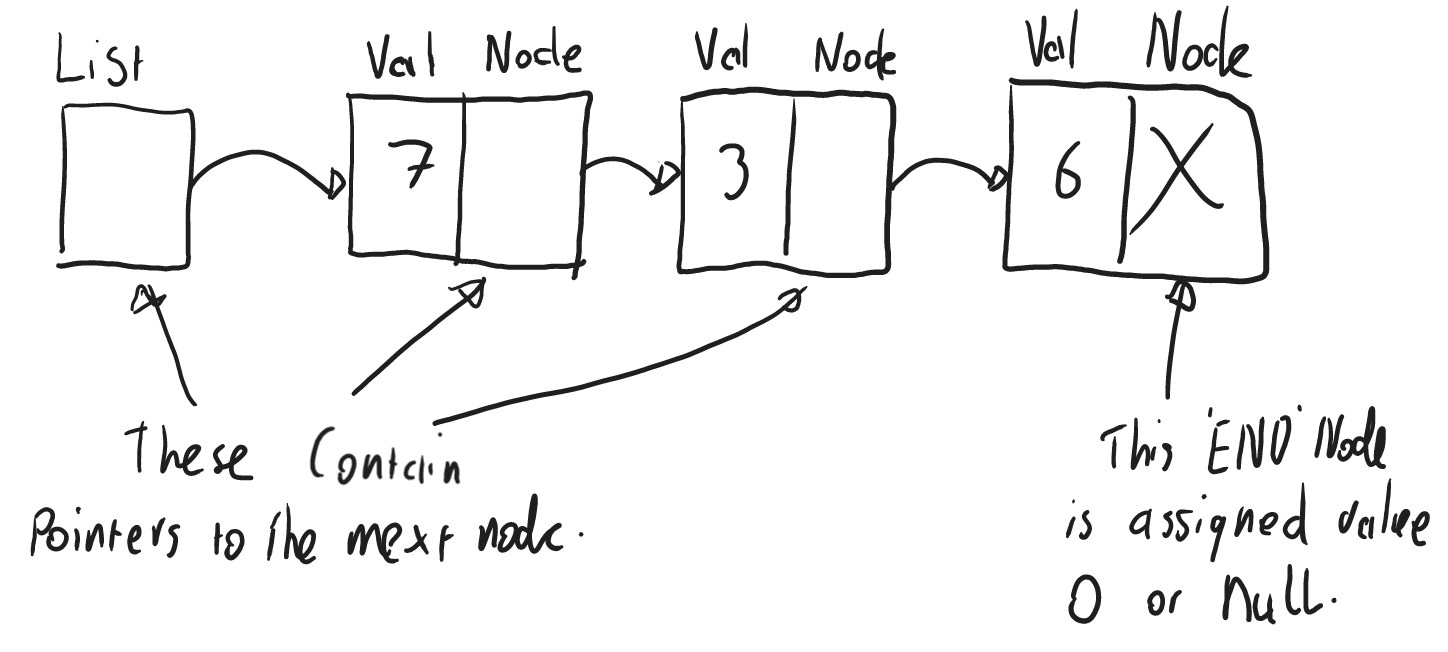 List
Val Node
Val Node
Val Node
7
3
6 X
These Contain
Pointers to the next node.
This 'END' Node
is assigned value
0 or Null.